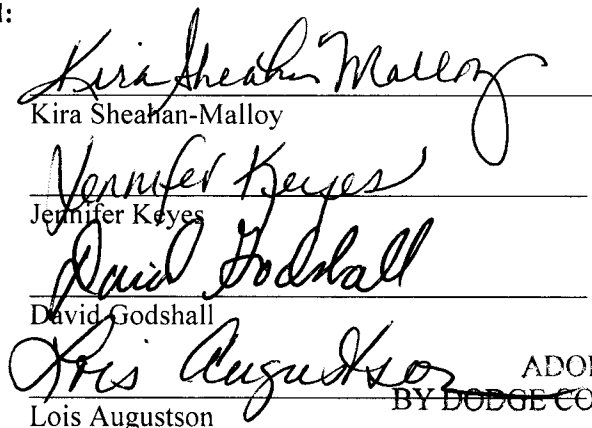 :
Kira Sheahan Malloy
Kira Sheahan-Malloy
Jennifer Keyes
Jennifer Keyes
David Godshall
David Godshall
Lois Augustson
ADO
BY DODGE CO
Lois Augustson